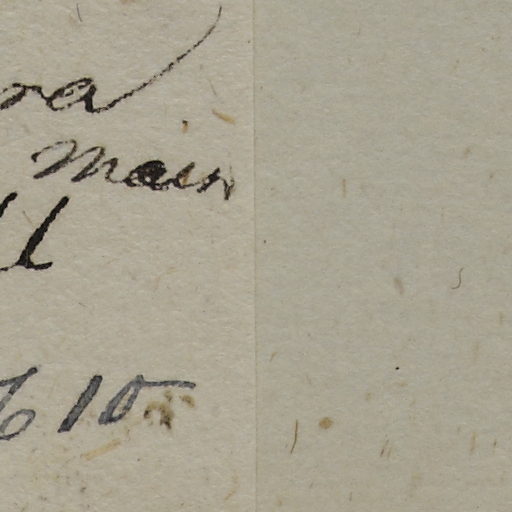 ra
Main
ll
6 10